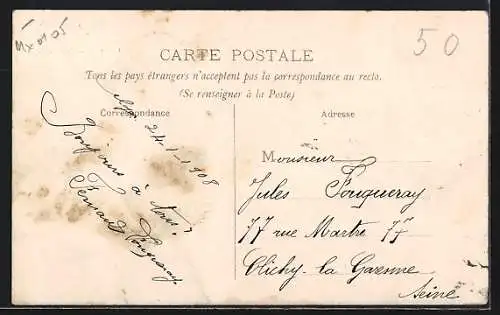 50
CARTE POSTALE
Tous les pays étrangers n'acceptent pas la correspondance au recto.
(Se renseigner à la Poste)
Correspondance
24-1-1908
Bonjour à tous
Fernand Fouqueray
Adresse
Monsieur
Jules Fouqueray
77 rue Martre 77
Clichy-la Garenne
Seine